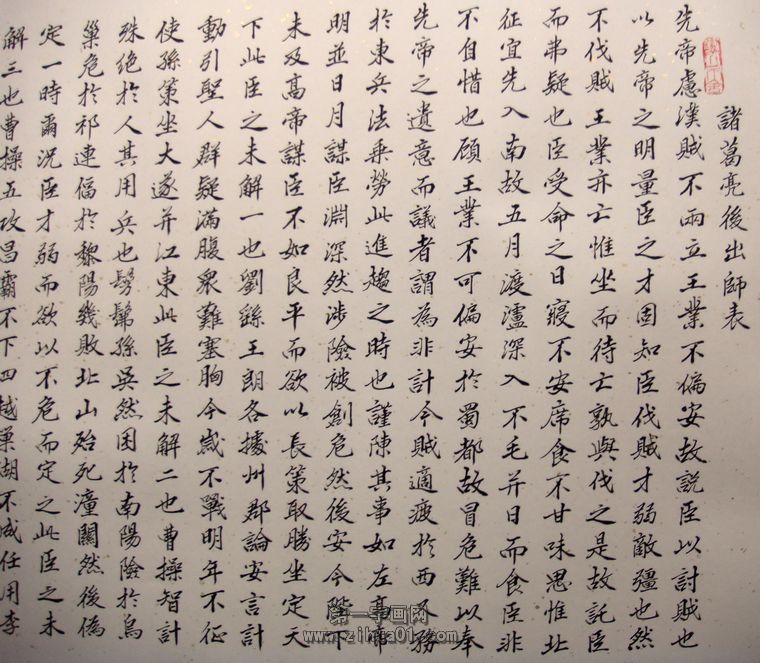 諸葛亮後出師表
先帝慮漢賊不兩立王業不偏安故説臣以討賊也
以先帝之明量臣之才固知臣伐賊才弱敵彊也然
不伐賊王業亦亡惟坐而待亡孰與伐之是故託臣
而弗疑也臣受命之日寢不安席食不甘味思惟北
征宜先入南故五月渡瀘深入不毛并日而食臣非
不自惜也顧王業不可偏安於蜀都故冒危難以奉
先帝之遺意而議者謂為非計今賊適疲於西又務
於東兵法乘勞此進趨之時也謹陳其事如左高帝
明並日月謀臣淵深然涉險被創危然後安今陛下
未及高帝謀臣不如良平而欲以長策取勝坐定天
下此臣之未解一也劉繇王朗各據州郡論安言計
動引聖人群疑滿腹衆難塞胸今歲不戰明年不征
使孫策坐大遂并江東此臣之未解二也曹操智計
殊絶於人其用兵也髣髴孫吳然困於南陽險於烏
巢危於祁連偪於黎陽幾敗北山殆死潼關然後偽
定一時爾況臣才弱而欲以不危而定之此臣之未
解三也曹操五攻昌霸不下四越巢湖不成任用李
第一字画网
www.zihua01.com